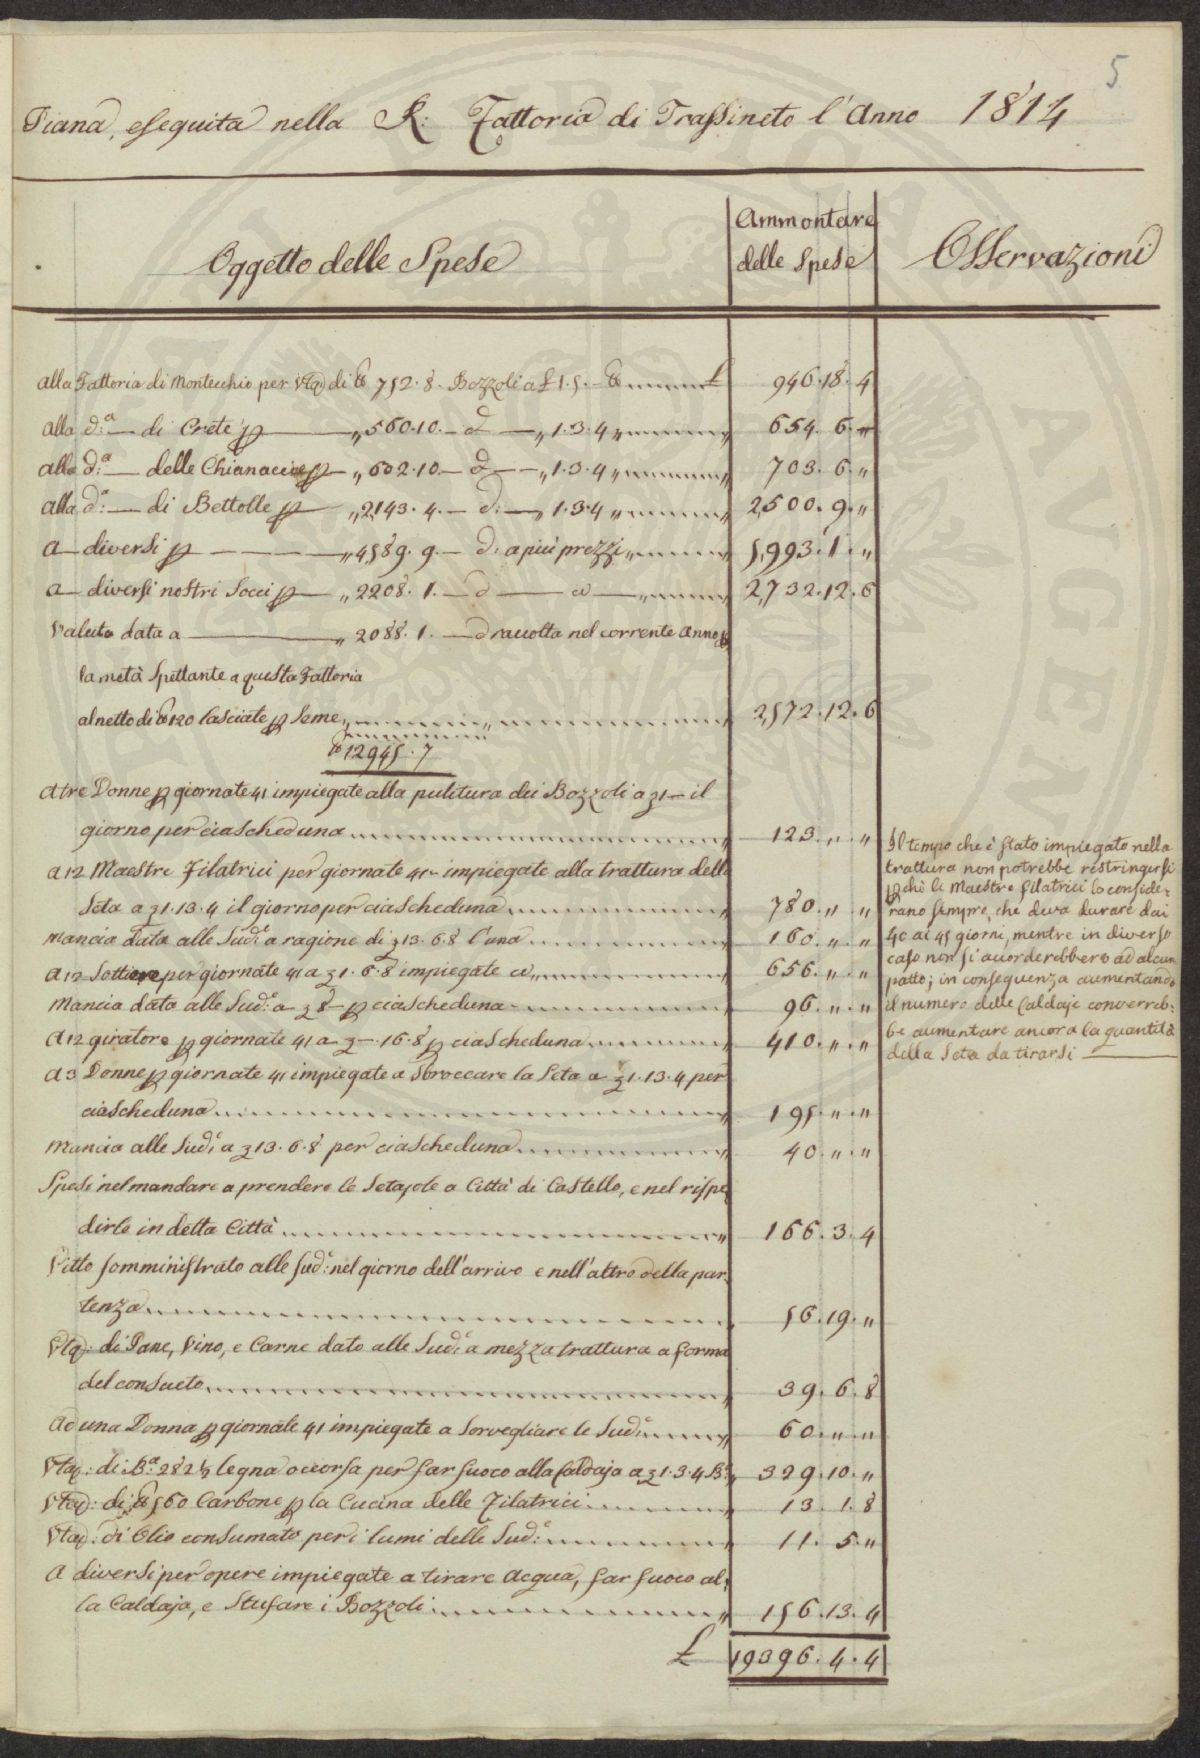 5
Tiana, eseguita nella R: Fattoria di Frassineto l'Anno 1814
Oggetto delle Spese
Ammontare
delle Spese
Osservazioni
alla Fattoria di Montecchio per Vta di lb 752. 8. Bozzoli a £ 1. 5. - lb £ 946. 18. 4
alla d:a — di Crete p — „ 560. 10. — d — „ 1. 3. 4 „ 654. 6. „
alla d:a — delle Chianacce p — „ 602. 10 — d — „ 1. 3. 4 „ 703. 6. „
alla d:a — di Bettolle p — „ 2,143. 4. — d: — „ 1. 3. 4 „ 2,500. 9. „
a — diversi p — „ 4589. 9. — d: a più prezzi „ 5,993. 1. „
a — diversi nostri Socci p — „ 2208. 1. — d — a — „ 2,732. 12. 6
Valuta data a — „ 2088. 1. — d raccolta nel corrente Anno p
la metà Spettante a questa Fattoria
al netto di lb 120 lasciate p Seme „ 2,572. 12. 6
lb 12945. 7
A tre Donne p giornate 41 impiegate alla pulitura dei Bozzoli a £ 1 — il
giorno per ciascheduna „ 123. „ „
a 12 Maestre Filatrici per giornate 41 — impiegate alla trattura della
Seta a £ 1. 13. 4 il giorno per ciascheduna „ 780. „ „
Mancia data alle Sud:e a ragione di £ 13. 6. 8 l'una „ 160. „ „
a 12 Sottiere per giornate 41 a £ 1. 6. 8 impiegate a „ 656. „ „
Mancia data alle Sud:e a £ 8 — p ciascheduna „ 96. „ „
a 12 giratore p giornate 41 a £ — 16. 8 p ciascheduna „ 410. „ „
a 3 Donne p giornate 41 impiegate a Sbroccare la Seta a £ 1. 13. 4 per
ciascheduna „ 195. „ „
Mancia alle Sud:e a £ 13. 6. 8 per ciascheduna „ 40. „ „
Spese nel mandare a prendere le Setajole a Città di Castello, e nel rispe
dirle in detta Città „ 166. 3. 4
Vitto somministrato alle sud:e nel giorno dell'arrivo e nell'altro della par,
tenza „ 56. 19. „
Vta: di Pane, Vino, e Carne dato alle Sud:e a mezza trattura a forma
del consueto „ 39. 6. 8
Ad una Donna p giornate 41 impiegate a Sorvegliare le Sud:e „ 60. „ „
Vta: di B:a 282 ½ legna occorsa per far fuoco alla Caldaja a £ 1. 3. 4 B:a „ 329. 10. „
Vta: di lb 560 Carbone p la Cucina delle Filatrici „ 13. 1. 8
Vta: di Olio consumato per i lumi delle Sud:e „ 11. 5. „
A diversi per opere impiegate a tirare Acqua, far fuoco al,
la Caldaja, e Stufare i Bozzoli „ 156. 13. 4
£ 19396. 4. 4
Il tempo che è stato impiegato nella
trattura non potrebbe restringersi
pchè le Maestre filatrici lo conside-
rano sempre, che deva durare dai
40 ai 45 giorni, mentre in diverso
caso non si accorderebbero ad alcun
patto; in conseguenza aumentando
il numero delle Caldaje converreb-
be aumentare ancora la quantità
della Seta da tirarsi —